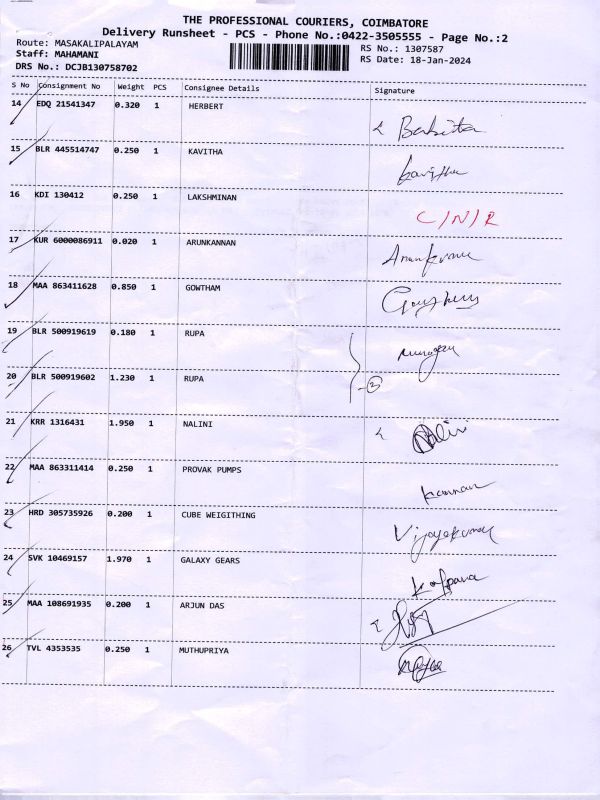 THE PROFESSIONAL COURIERS, COIMBATORE
Delivery Runsheet - PCS - Phone No.:0422-3505555 - Page No.:2
Route: MASAKALIPALAYAM
Staff: MAHAMANI
DRS No.: DCJB130758702
RS No.: 1307587
RS Date: 18-Jan-2024
S No Consignment No Weight PCS Consignee Details Signature
14 EDQ 21541347 0.320 1 HERBERT
15 BLR 445514747 0.250 1 KAVITHA Kavitha
16 KDI 130412 0.250 1 LAKSHMINAN C/N/R
17 KUR 6000086911 0.020 1 ARUNKANNAN
18 MAA 863411628 0.850 1 GOWTHAM
19 BLR 500919619 0.180 1 RUPA murugan
20 BLR 500919602 1.230 1 RUPA 2
21 KRR 1316431 1.950 1 NALINI Nalini
22 MAA 863311414 0.250 1 PROVAK PUMPS Kannan
23 HRD 305735926 0.200 1 CUBE WEIGITHING Vijayakumar
24 SVK 10469157 1.970 1 GALAXY GEARS Kalpana
25 MAA 108691935 0.200 1 ARJUN DAS
26 TVL 4353535 0.250 1 MUTHUPRIYA